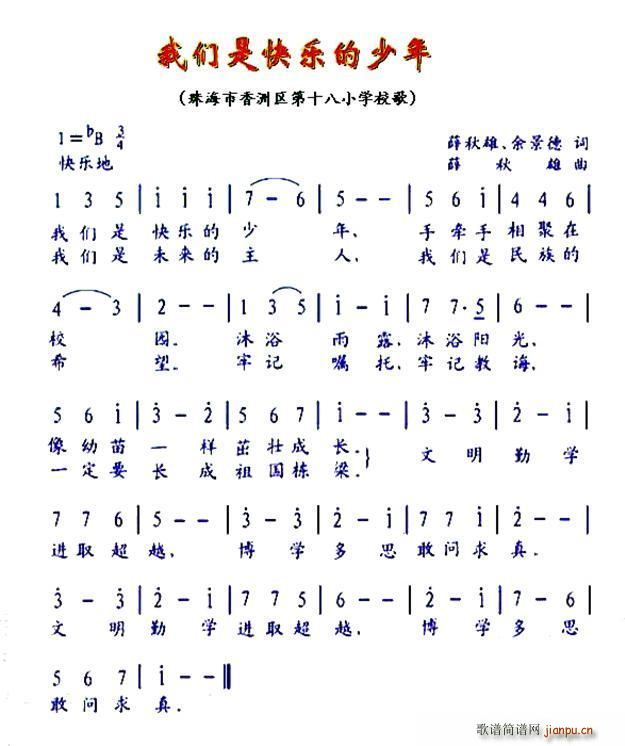 我们是快乐的少年
（珠海市香洲区第十八小学校歌）
1=ᵇB 3/4 薛秋雄、余景德 词
快乐地 薛秋雄 曲
1 3 5 | i i i | 7 - 6 | 5 - - | 5 6 i | 4 4 6 |
我们是 快乐的 少 年、 手牵手 相聚在
我们是 未来的 主 人、 我们是 民族的
4 - 3 | 2 - - | 1 3 5 | i - i | 7 7· 5 | 6 - - |
校 园。 沐浴 雨露，沐浴阳光，
希 望。 牢记 嘱托，牢记教诲，
5 6 i | 3̇ - 2̇ | 5 6 7 | i - - | 3̇ - 3̇ | 2̇ - i |
像幼苗 一 样 茁壮成长。 文 明 勤 学
一定要 长 成 祖国栋梁。
7 7 6 | 5 - - | 3̇ - 3̇ | 2̇ - i | 7 7 i | 2̇ - - |
进取超越， 博 学 多 思 敢问求真。
3̇ - 3̇ | 2̇ - i | 7 7 5 | 6 - - | 2̇ - i | 7 - 6 |
文 明 勤 学 进取超越， 博 学 多 思
5 6 7 | i - - ‖
敢问求真。
歌谱简谱网
jianpu.cn